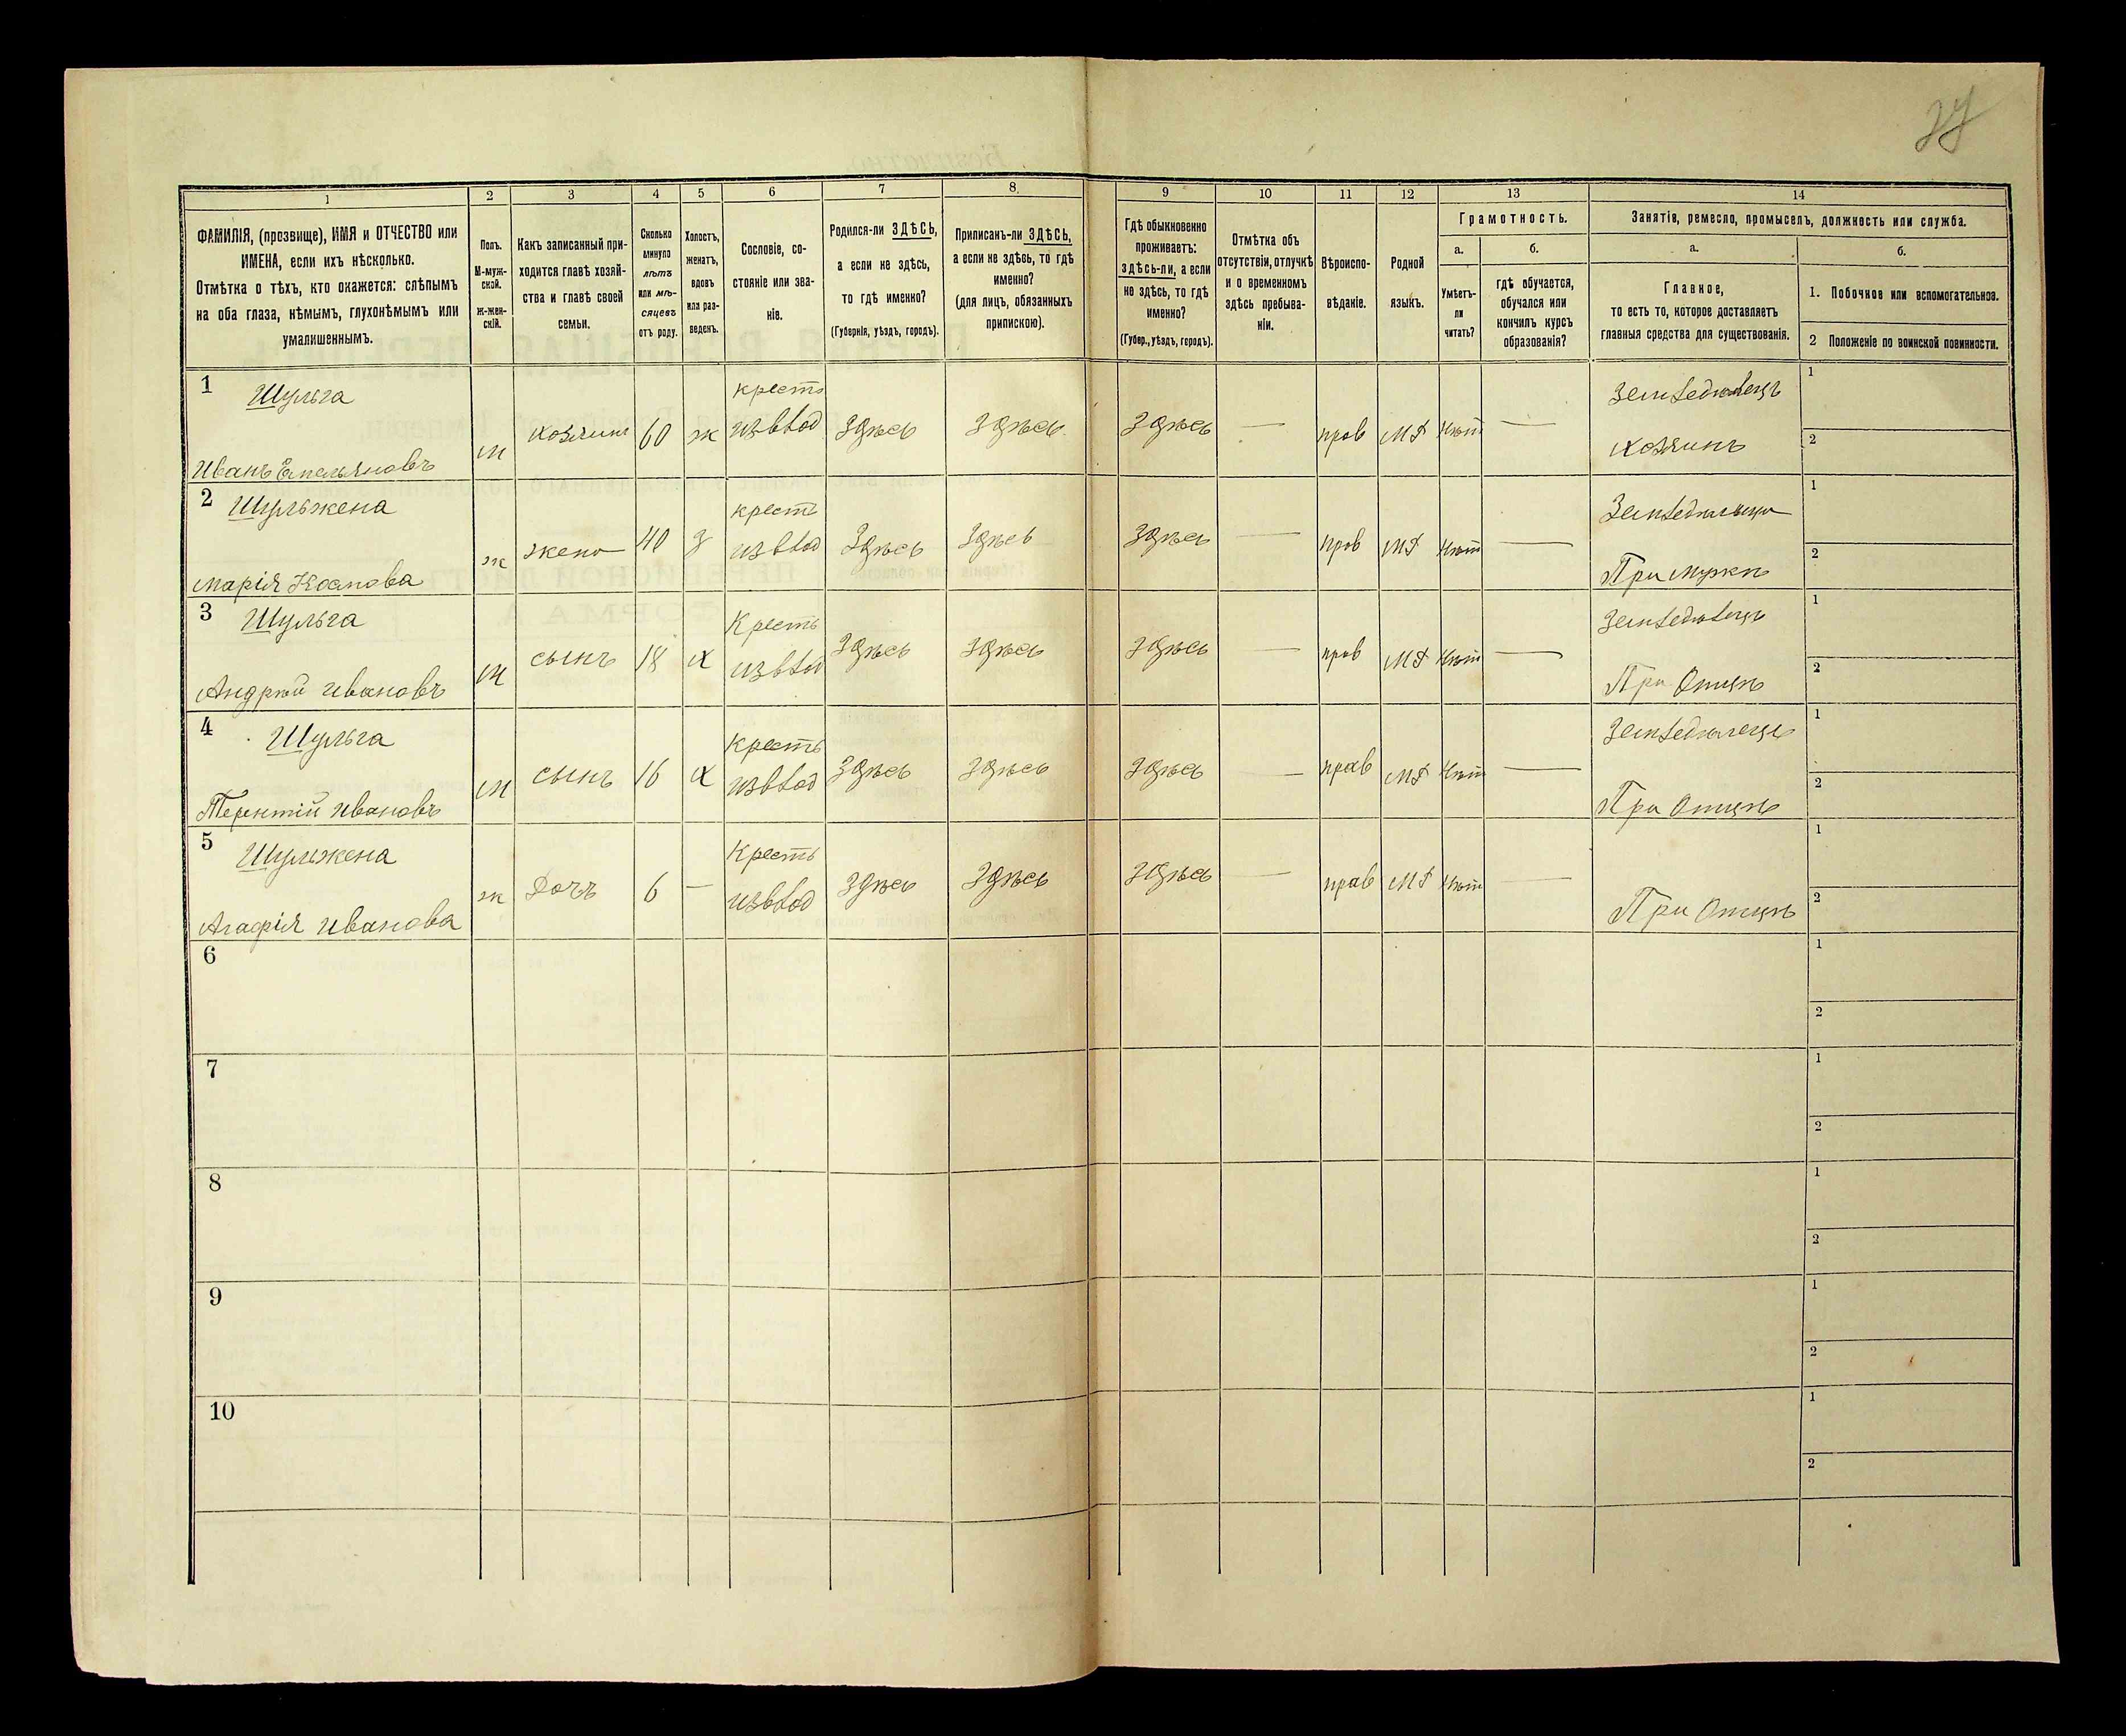 27
1
2
3
4
5
6
7
8
9
10
11
12
13
14
ФАМИЛІЯ, (прозвище), ИМЯ и ОТЧЕСТВО или
ИМЕНА, если ихъ нѣсколько.
Отмѣтка о тѣхъ, кто окажется: слѣпымъ
на оба глаза, нѣмымъ, глухонѣмымъ или
умалишеннымъ.
Полъ.
М-муж-
ской.
ж-жен-
скій.
Какъ записанный при-
ходится главѣ хозяй-
ства и главѣ своей
семьи.
Сколько
минуло
лѣтъ
или мѣ-
сяцевъ
отъ роду.
Холостъ,
женатъ,
вдовъ
или раз-
веденъ.
Сословіе, со-
стояніе или зва-
ніе.
Родился-ли ЗДѢСЬ,
а если не здѣсь,
то гдѣ именно?
(Губернія, уѣздъ, городъ).
Приписанъ-ли ЗДѢСЬ,
а если не здѣсь, то гдѣ
именно?
(для лицъ, обязанныхъ
припискою).
Гдѣ обыкновенно
проживаетъ:
здѣсь-ли, а если
не здѣсь, то гдѣ
именно?
(Губер., уѣздъ, городъ).
Отмѣтка объ
отсутствіи, отлучкѣ
и о временномъ
здѣсь пребыва-
ніи.
Вѣроиспо-
вѣданіе.
Родной
языкъ.
Грамотность.
а.
Умѣетъ-
ли
читать?
б.
гдѣ обучается,
обучался или
кончилъ курсъ
образованія?
Занятія, ремесло, промыселъ, должность или служба.
а.
Главное,
то есть то, которое доставляетъ
главныя средства для существованія.
б.
1. Побочное или вспомогательное.
2 Положеніе по воинской повинности.
1
Шульга
Иванъ Емельяновъ
м
хозяинъ
60
ж
крест
изъ влад
Здѣсь
Здѣсь
Здѣсь
—
прав
МР
Нѣт
—
Земледѣлецъ
хозяинъ
1
2
2
Шульжена
Марія
ж
жена
40
з
крест
изъ влад
Здѣсь
Здѣсь
Здѣсь
—
прав
МР
Нѣт
—
При мужѣ
1
2
3
Шульга
Андрѣй Ивановъ
м
сынъ
18
х
Крест
изъ влад
Здѣсь
Здѣсь
Здѣсь
—
прав
МР
Нѣт
—
Земледѣлецъ
При Отцѣ
1
2
4
Шульга
Терентій Ивановъ
м
сынъ
16
х
Крест
изъ влад
Здѣсь
Здѣсь
Здѣсь
—
прав
МР
Нѣт
—
Земледѣлецъ
При Отцѣ
1
2
5
Шульжена
Агафія Иванова
ж
Дочъ
6
—
Крест
изъ влад
Здѣсь
Здѣсь
Здѣсь
—
прав
МР
Нѣт
—
При Отцѣ
1
2
6
1
2
7
1
2
8
1
2
9
1
2
10
1
2